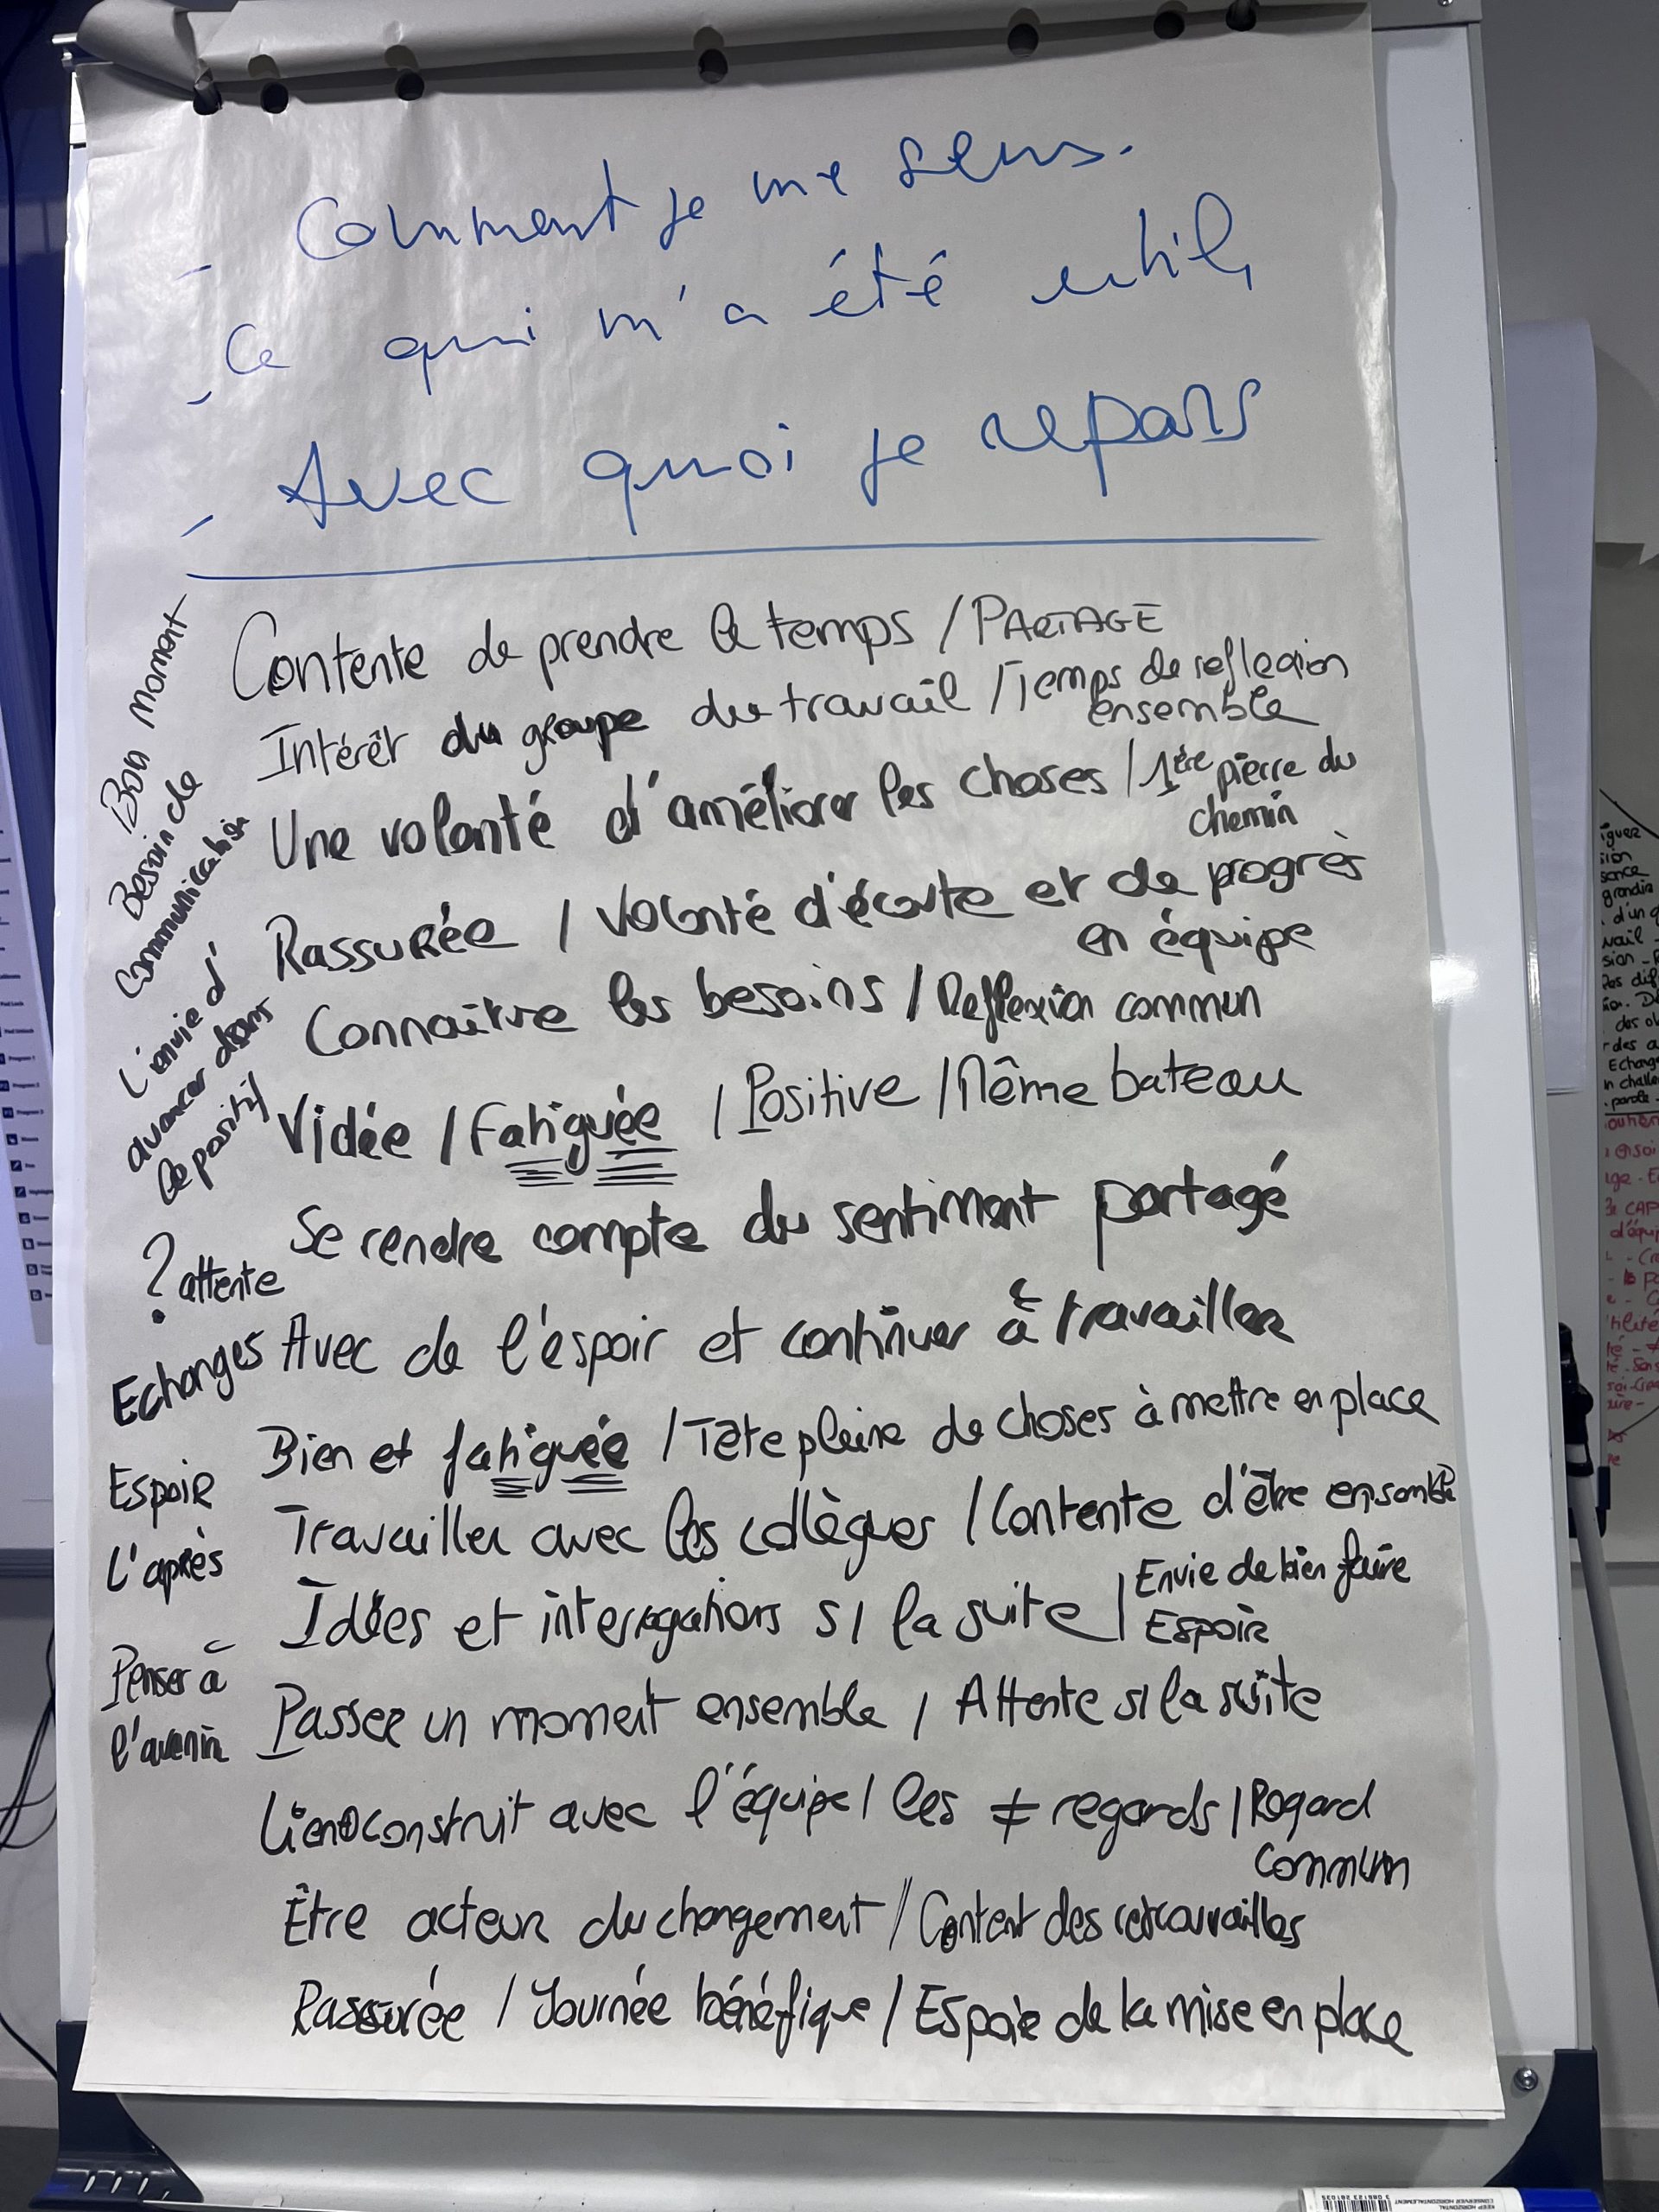 - Comment je me sens.
- Ce qui m'a été utile
- Avec quoi je repars
Contente de prendre le temps / PARTAGE
Intérêt du groupe du travail / Temps de reflexion
ensemble
Une volonté d'améliorer les choses / 1ère pierre du
chemin
Rassurée / Volonté d'écoute et de progrès
en équipe
Connaître les besoins / Reflexion commun
Vidée / Fatiguée / Positive / Même bateau
Se rendre compte du sentiment partagé
Avec de l'espoir et continuer à travailler
Bien et fatiguée / Tête pleine de choses à mettre en place
Travailler avec les collègues / Contente d'être ensemble
Idées et interrogations s/ la suite / Envie de bien faire
Espoir
Passer un moment ensemble / Attente s/ la suite
Lien construit avec l'équipe / les ≠ regards / Regard
commun
Être acteur du changement / Content des retrouvailles
Rassurée / Journée bénéfique / Espoir de la mise en place
Bon moment
Besoin de
communication
L'envie d'
avancer dans
le positif
? attente
Echanges
Espoir
L'après
Penser à
l'avenir